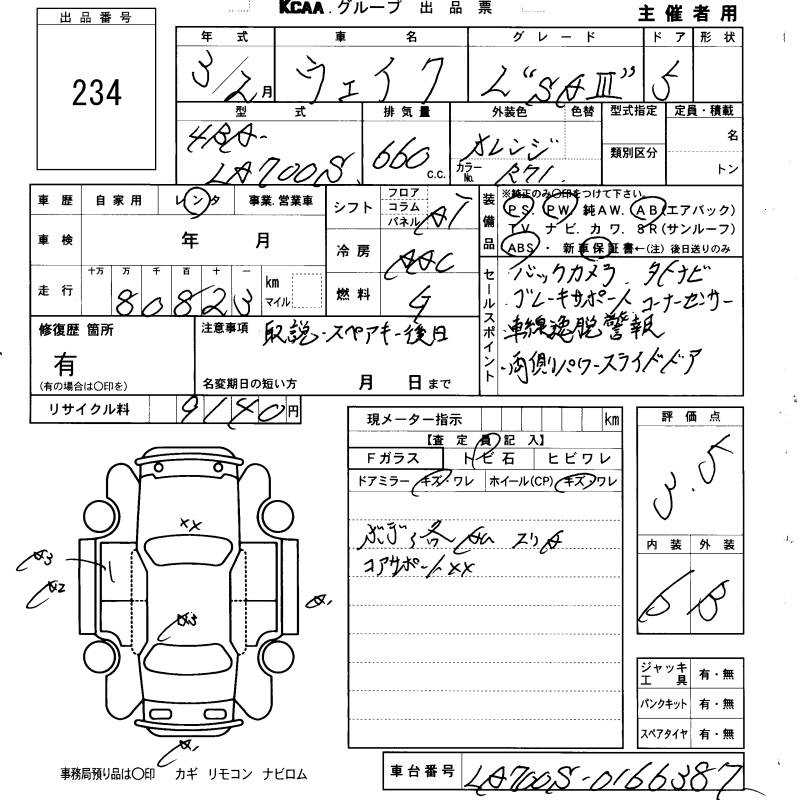 KCAA.グループ 出品票
主催者用
出品番号
234
年式 車名 グレード ドア 形状
3/2月 ウェイク L"SAⅢ" 5
型式 排気量 外装色 色替 型式指定 定員・積載
4BA-
LA700S 660 c.c. オレンジ 名
カラーNo. R71 類別区分 トン
車歴 自家用 レンタ 事業.営業車
車検 年 月
走行 十万 万 千 百 十 一
80823 km マイル
シフト フロア コラム パネル AT
冷房 AAC
燃料 G
装備品 ※純正のみ○印をつけて下さい.
PS. PW. 純AW. AB(エアバック)
TV. ナビ. カワ. SR(サンルーフ)
ABS・新車保証書←(注)後日送りのみ
セールスポイント
バックカメラ. タトナビ
ブレーキサポート コーナーセンサー
車線逸脱警報
両側パワースライドドア
修復歴 箇所
有
(有の場合は○印を)
注意事項 取説・スペアキー後日
名変期日の短い方 月 日まで
リサイクル料 9140円
現メーター指示 km
【査定員記入】
Fガラス トビ石 ヒビワレ
ドアミラー キズ・ワレ ホイール(CP) キズ・ワレ
ボディ各 スリA
コアサポートXX
評価点
3.5
内装 外装
B B
ジャッキ工具 有・無
パンクキット 有・無
スペアタイヤ 有・無
XX
A3
A2
A1
A3
A1
事務局預り品は○印 カギ リモコン ナビロム
車台番号 LA700S-0166387